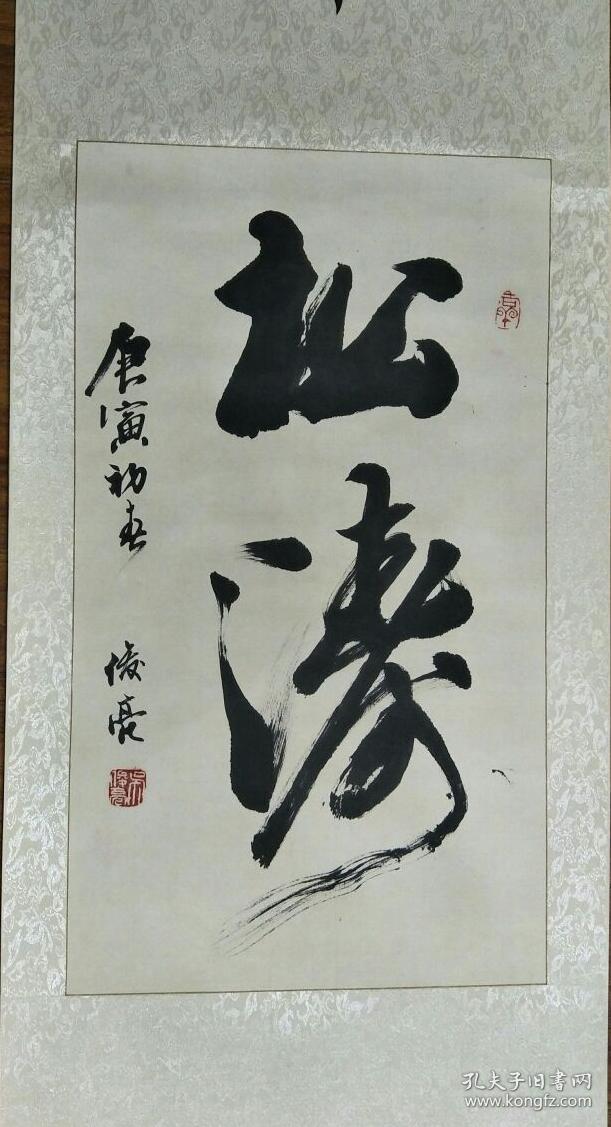 松涛
庚寅初春
俊亮
孔夫子旧书网
www.kongfz.com